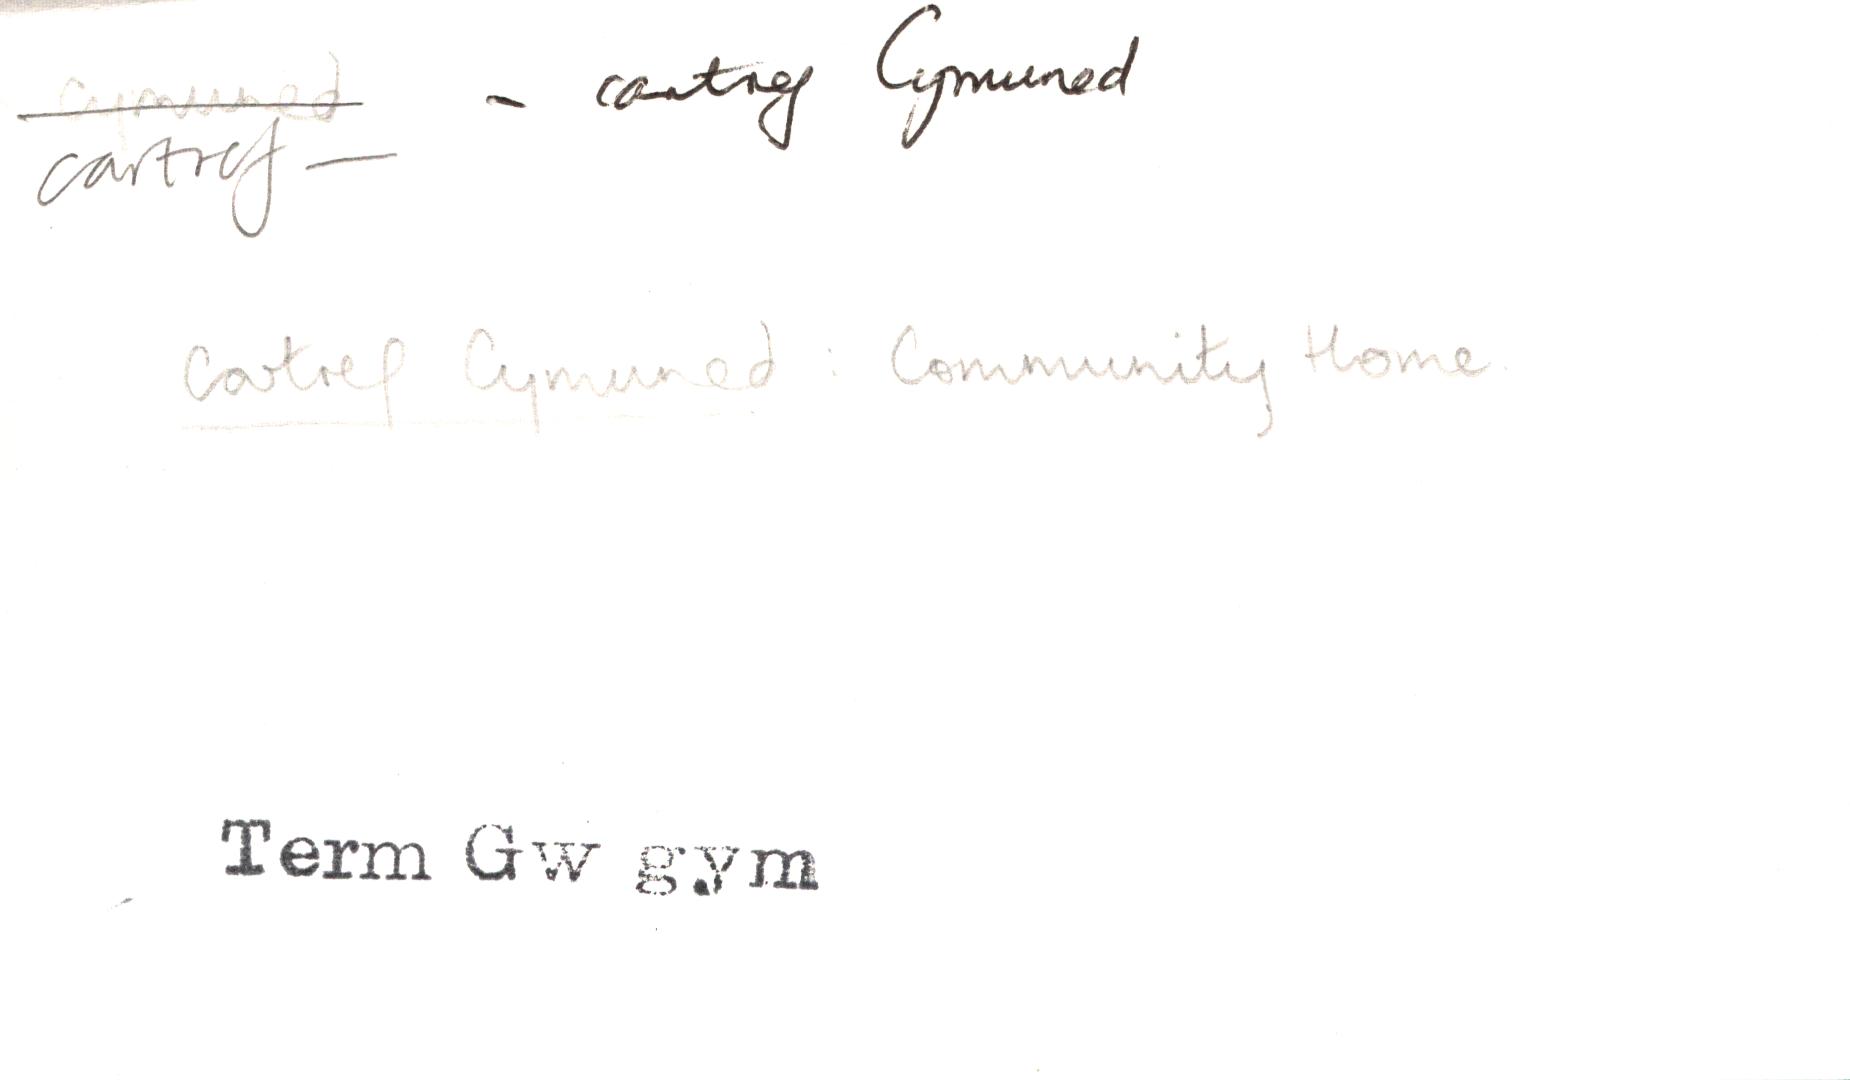 cymuned - cartref Cymuned
cartref —
Cartref Cymuned : Community Home.
Term Gw gym